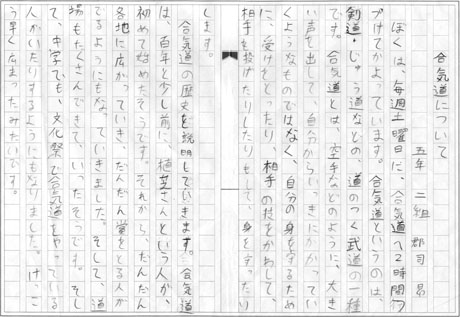 合気道について
五年 二組 郡司 昴
ぼくは、毎週土曜日に、合気道へ2時間行
づけてかよっています。合気道というのは、
剣道・じゅう道などの、道のつく武道の一種
です。合気道とは、空手などのように、大き
い声を出して、自分からいきにかかってい
くようなものではなく、自分の身を守るため
に、受けをとったり、相手の技をかわして、
相手を投げたりしたりもして、身を守ったり
します。
合気道の歴史を説明していきます。合気道
は、百年と少し前に、植芝さんという人が、
初めて始めたそうです。それから、だんだん
各地に広がっていき、だんだん賞をとる人が
でるようにもなっていきました。そして、道
場もたくさんできて、いったそうです。そし
て、中学でも、文化祭で合気道をやっている
人がいたりするようにもなりました。けっこ
う早く広まったみたいです。